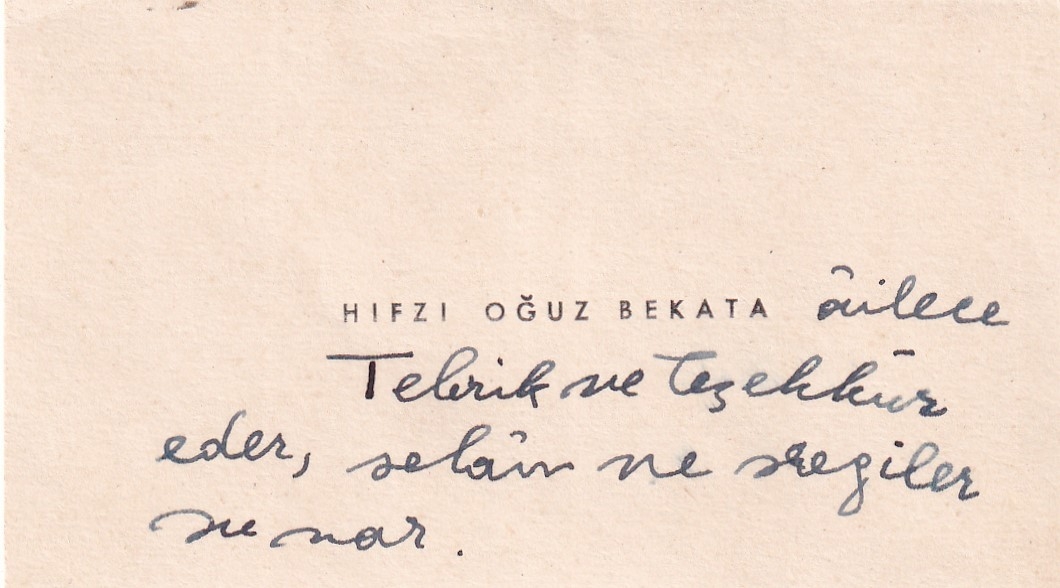 HIFZI OĞUZ BEKATA âilece
Tebrik ve teşekkür
eder, selâm ve sevgiler
sunar.